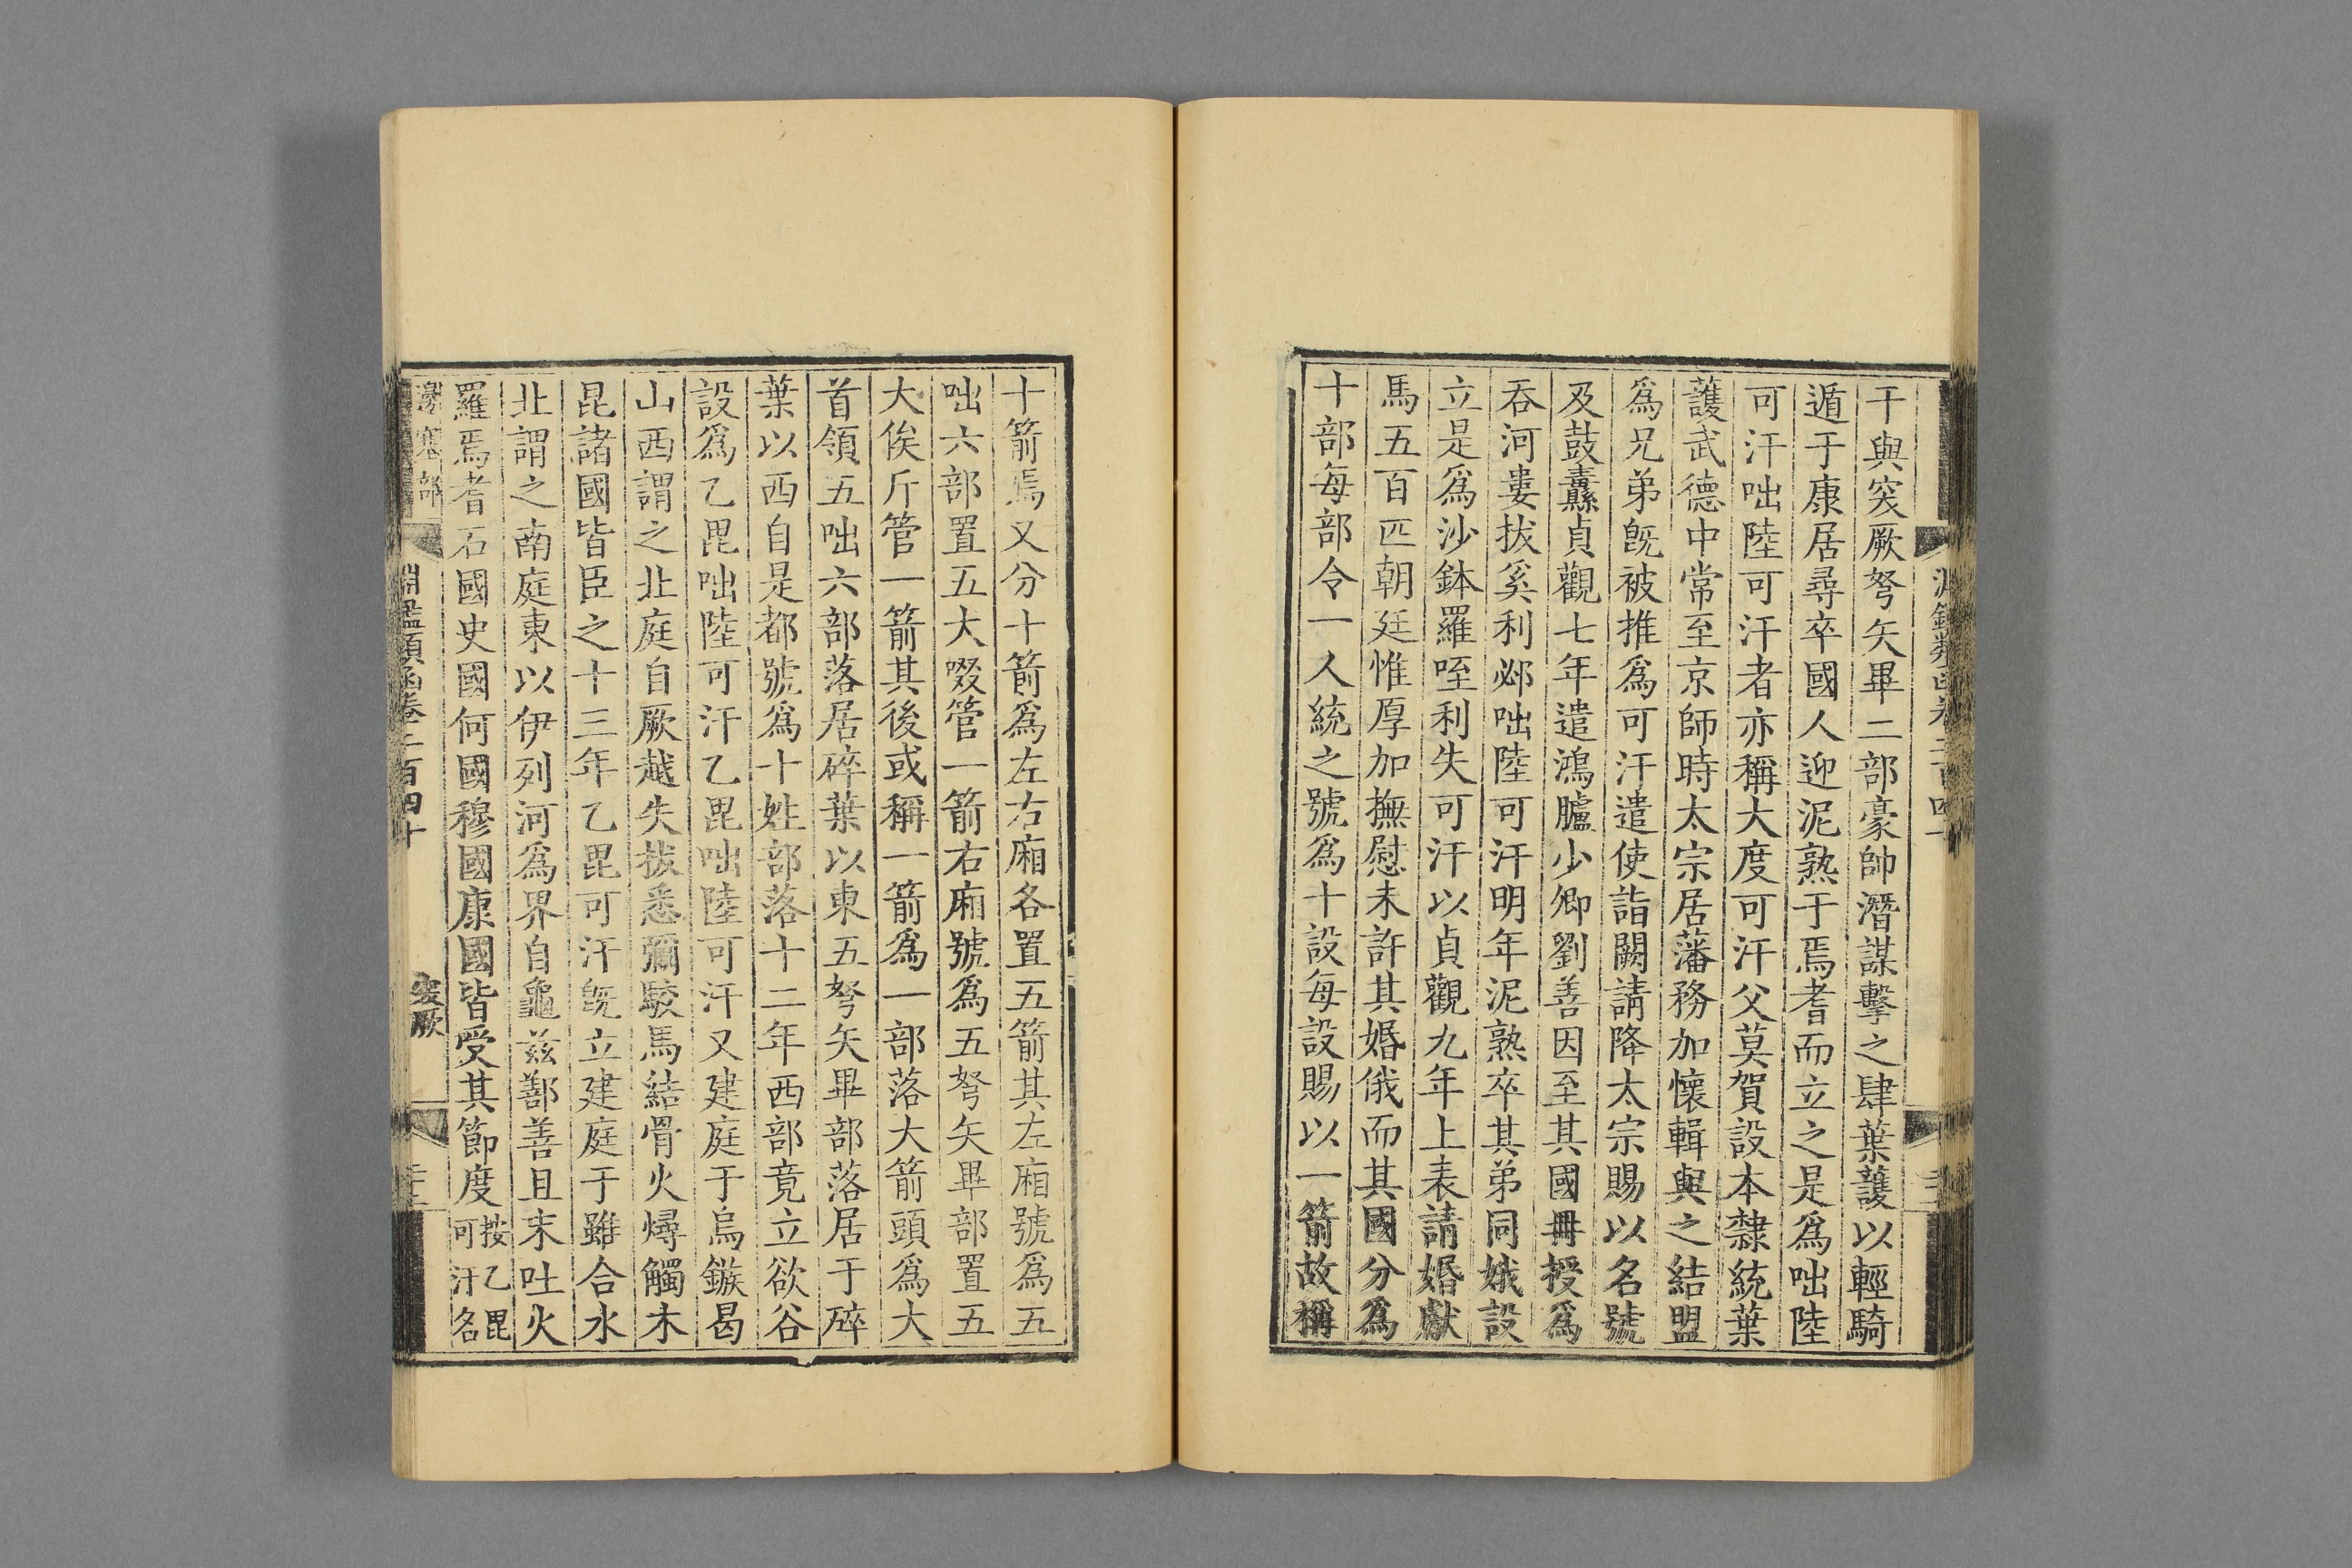 干與突厥弩矢畢二部豪帥潛謀擊之肆葉護以輕騎
遁于康居尋卒國人迎泥熟于焉耆而立之是爲咄陸
可汗咄陸可汗者亦稱大度可汗父莫賀設本隸統葉
護武德中常至京師時太宗居藩務加懷輯與之結盟
爲兄弟旣被推爲可汗遣使詣闕請降太宗賜以名號
及鼓纛貞觀七年遣鴻臚少卿劉善因至其國冊授爲
吞河婁拔奚利邲咄陸可汗明年泥熟卒其弟同娥設
立是爲沙鉢羅咥利失可汗以貞觀九年上表請婚獻
馬五百匹朝廷惟厚加撫慰未許其婚俄而其國分爲
十部每部令一人統之號爲十設每設賜以一箭故稱
十箭焉又分十箭爲左右廂各置五箭其左廂號爲五
咄六部置五大啜管一箭右廂號爲五弩矢畢部置五
大俟斤管一箭其後或稱一箭爲一部落大箭頭爲大
首領五咄六部落居碎葉以東五弩矢畢部落居于碎
葉以西自是都號爲十姓部落十二年西部竟立欲谷
設爲乙毘咄陸可汗乙毘咄陸可汗又建庭于烏鏃曷
山西謂之北庭自厥越失拔悉彌駮馬結骨火燖觸木
昆諸國皆臣之十三年乙毘可汗旣立建庭于雖合水
北謂之南庭東以伊列河爲界自龜茲鄯善且末吐火
羅焉耆石國史國何國穆國康國皆受其節度
按乙毘
可汗名
邊塞部 淵鑑類函卷二百四十 突厥